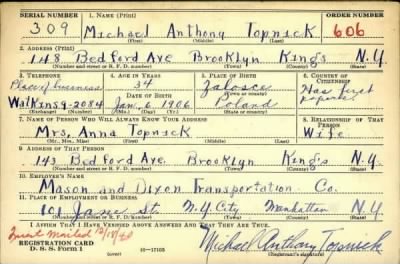 SERIAL NUMBER 1. NAME (Print) ORDER NUMBER
309 Michael Anthony Topnick 606
(First) (Middle) (Last)
2. ADDRESS (Print)
148 Bedford Ave Brooklyn Kings N.Y.
(Number and street or R. F. D. number) (Town) (County) (State)
3. TELEPHONE 4. AGE IN YEARS 5. PLACE OF BIRTH 6. COUNTRY OF CITIZENSHIP
Place of business 34 Zalosce Has first papers
DATE OF BIRTH (Town or county)
Walkins 9-2084 Jan. 6, 1906 Poland
(Exchange) (Number) (Mo.) (Day) (Yr.) (State or country)
7. NAME OF PERSON WHO WILL ALWAYS KNOW YOUR ADDRESS 8. RELATIONSHIP OF THAT PERSON
Mrs. Anna Topnick Wife
(Mr., Mrs., Miss) (First) (Middle) (Last)
9. ADDRESS OF THAT PERSON
143 Bedford Ave. Brooklyn Kings N.Y.
(Number and street or R. F. D. number) (Town) (County) (State)
10. EMPLOYER'S NAME
Mason and Dixon Transportation Co.
11. PLACE OF EMPLOYMENT OR BUSINESS
101 Jane St. N.Y. City Manhattan N.Y.
(Number and street or R. F. D. number) (Town) (County) (State)
I AFFIRM THAT I HAVE VERIFIED ABOVE ANSWERS AND THAT THEY ARE TRUE.
mailed
REGISTRATION CARD
D. S. S. Form 1 (over) 16-17105 Michael Anthony Topnick
(Registrant's signature)